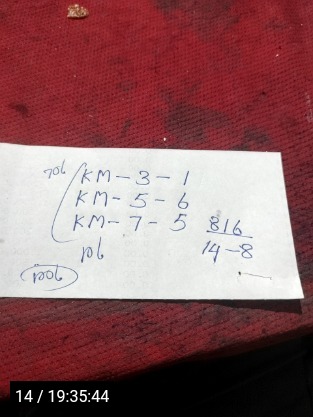 KM-3-1
KM-5-6
KM-7-5 816
14-8
14 / 19:35:44